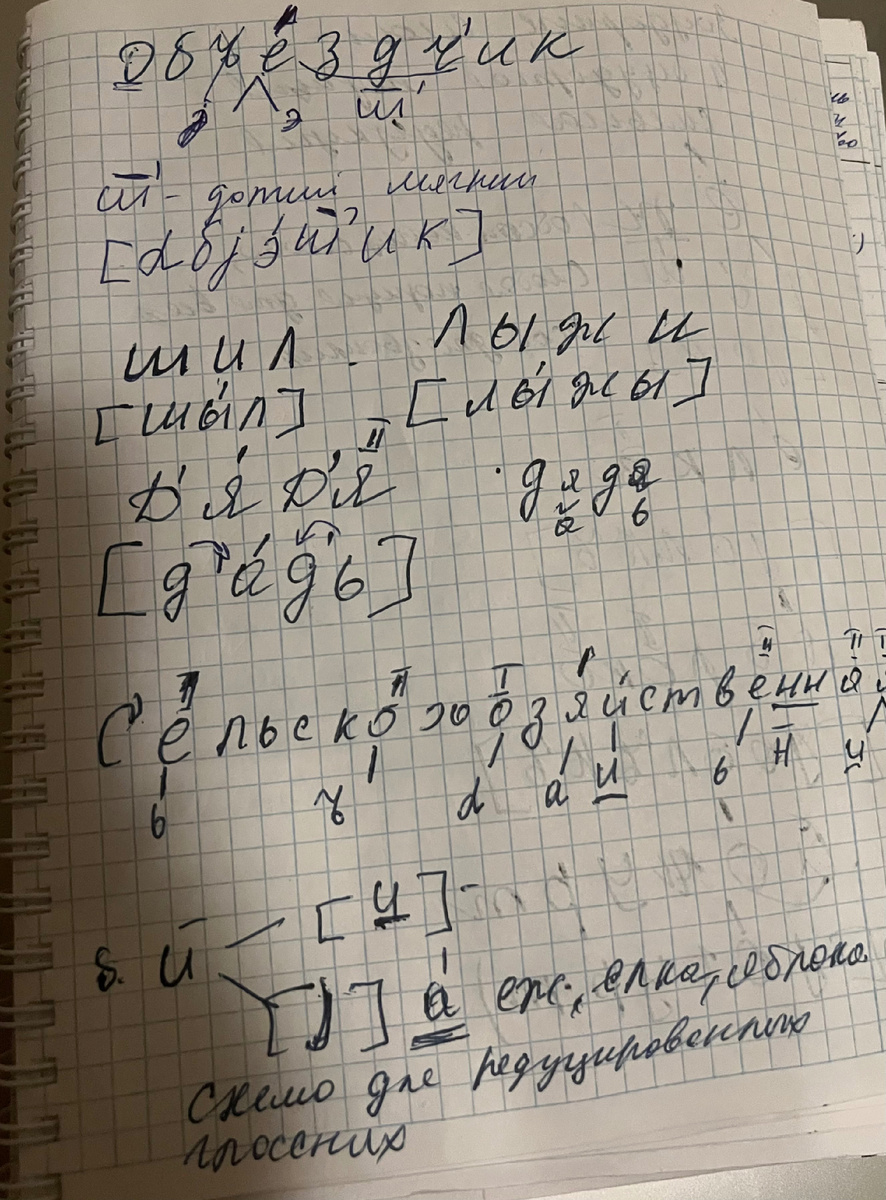 Объездчик
э ш̅'
ш̅' - долгий мягкий
[αбjэ́ш̅'ик]
шил лыжи
[шы́л] [лы́жы]
Д'я́ Д'я II дядя
а ь
[д'а́д'ь]
II II I II II
Сельскохозяйственная
ь ъ α а и ь н̅ и
б. й [и]
[j] а́ еж, елка, яблоко
Схема для редуцированных
гласных